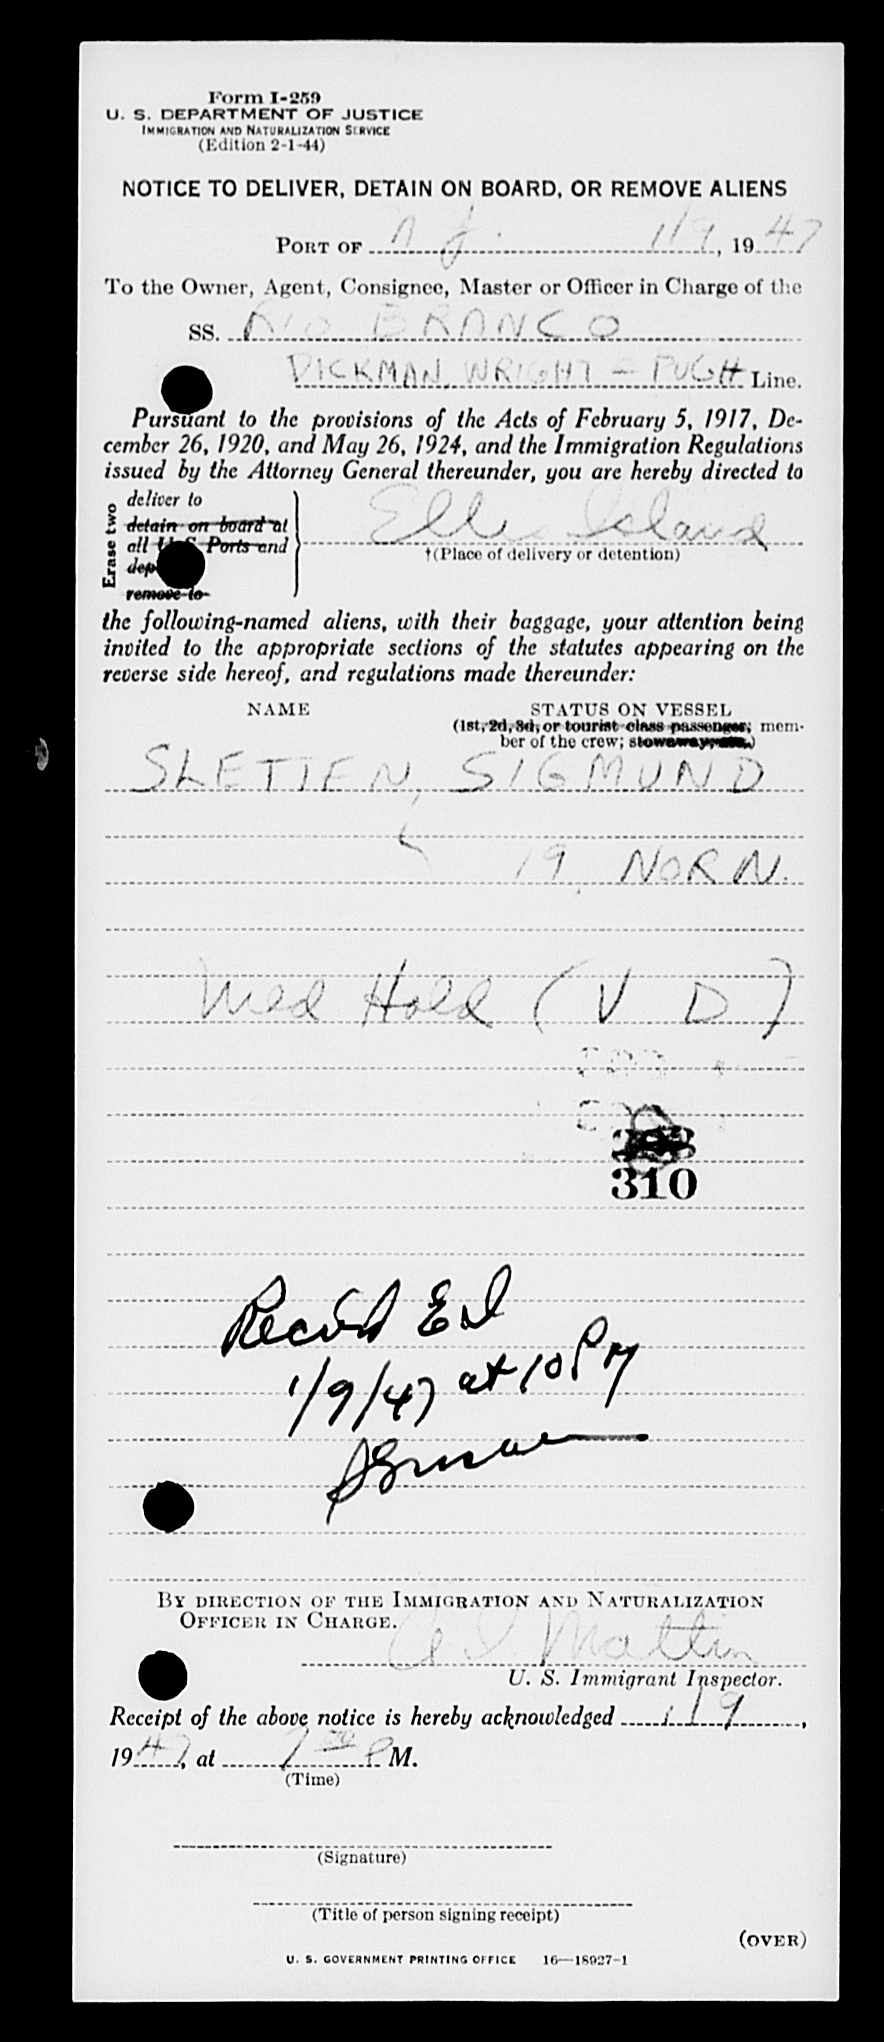 Form I-259
U. S. DEPARTMENT OF JUSTICE
IMMIGRATION AND NATURALIZATION SERVICE
(Edition 2-1-44)
NOTICE TO DELIVER, DETAIN ON BOARD, OR REMOVE ALIENS
PORT OF N.Y. 1/9, 1947
To the Owner, Agent, Consignee, Master or Officer in Charge of the
SS. RIO BRANCO
DICKMAN WRIGHT - PUGH Line.
Pursuant to the provisions of the Acts of February 5, 1917, De-
cember 26, 1920, and May 26, 1924, and the Immigration Regulations
issued by the Attorney General thereunder, you are hereby directed to
Erase two
deliver to
detain on board at
all U S Ports and
dep
remove to
Ellis Island
†(Place of delivery or detention)
the following-named aliens, with their baggage, your attention being
invited to the appropriate sections of the statutes appearing on the
reverse side hereof, and regulations made thereunder:
NAME STATUS ON VESSEL
(1st, 2d, 3d, or tourist class passenger; mem-
ber of the crew; stowaway, etc.)
SLETTEN, SIGMUND
19, NORW.
Med Hold (V D)
310
Recv'd E I
1/9/47 at 10 PM
BY DIRECTION OF THE IMMIGRATION AND NATURALIZATION
OFFICER IN CHARGE.
Mattin
U. S. Immigrant Inspector.
Receipt of the above notice is hereby acknowledged 1/9,
1947, at 7 00 P M.
(Time)
(Signature)
(Title of person signing receipt)
(OVER)
U. S. GOVERNMENT PRINTING OFFICE 16—18927-1